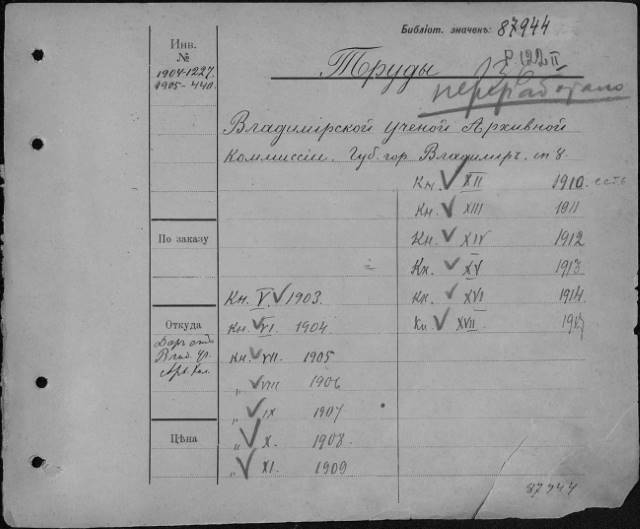 Библіот. значенъ: 87944
Инв.
№
1904-1227.
1905-440.
Р. 122 II
Труды
переработано
Владимірской Ученой Архивной
Коммиссіи. Губ. гор. Владимиръ.
Кн. XII 1910. есть
Кн. XIII 1911
Кн. XIV 1912
Кн. XV 1913
Кн. XVI 1914
Кн. XVII
По заказу
Кн. V. 1903.
Откуда
Даръ отъ
Кн. VI. 1904
Влад. Уч.
Арх. Ком.
Кн. VII. 1905
„ VIII 1906
„ IX 1907
Цѣна
„ X. 1908.
„ XI. 1909
87944